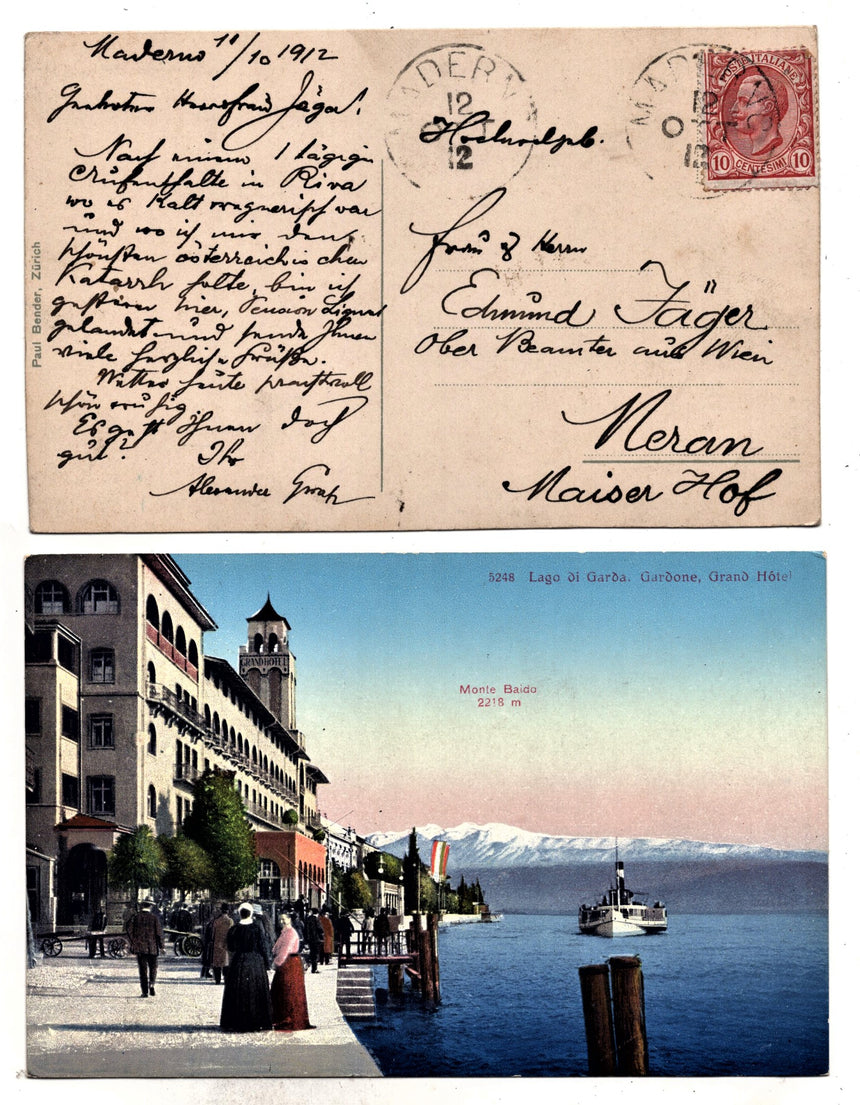 Maderno 11/10 1912
Geehrter Herr Jäger!
Nach einem 1 tägigen
Aufenthalte in Riva
wo es kalt wagnerisch war
und wo ich mir den
schönsten österreichischen
Katarrh holte, bin ich
gestern hier, Pension Lignet
gelandet und sende Ihnen
viele herzliche Grüße.
Wetter heute prachtvoll
schön ruhig
Es geht Ihnen doch
gut? Ihr
Alexander
Paul Bender, Zürich
MADERN
12
12
MAD
12
O
12
POSTE ITALIANE
10 CENTESIMI 10
Hochwohlgeb.
Frau & Herrn
Edmund Jäger
Ober Beamter aus Wien
Meran
Maiser Hof
5248 Lago di Garda. Gardone, Grand Hôtel
GRAND HOTEL
Monte Baldo
2218 m